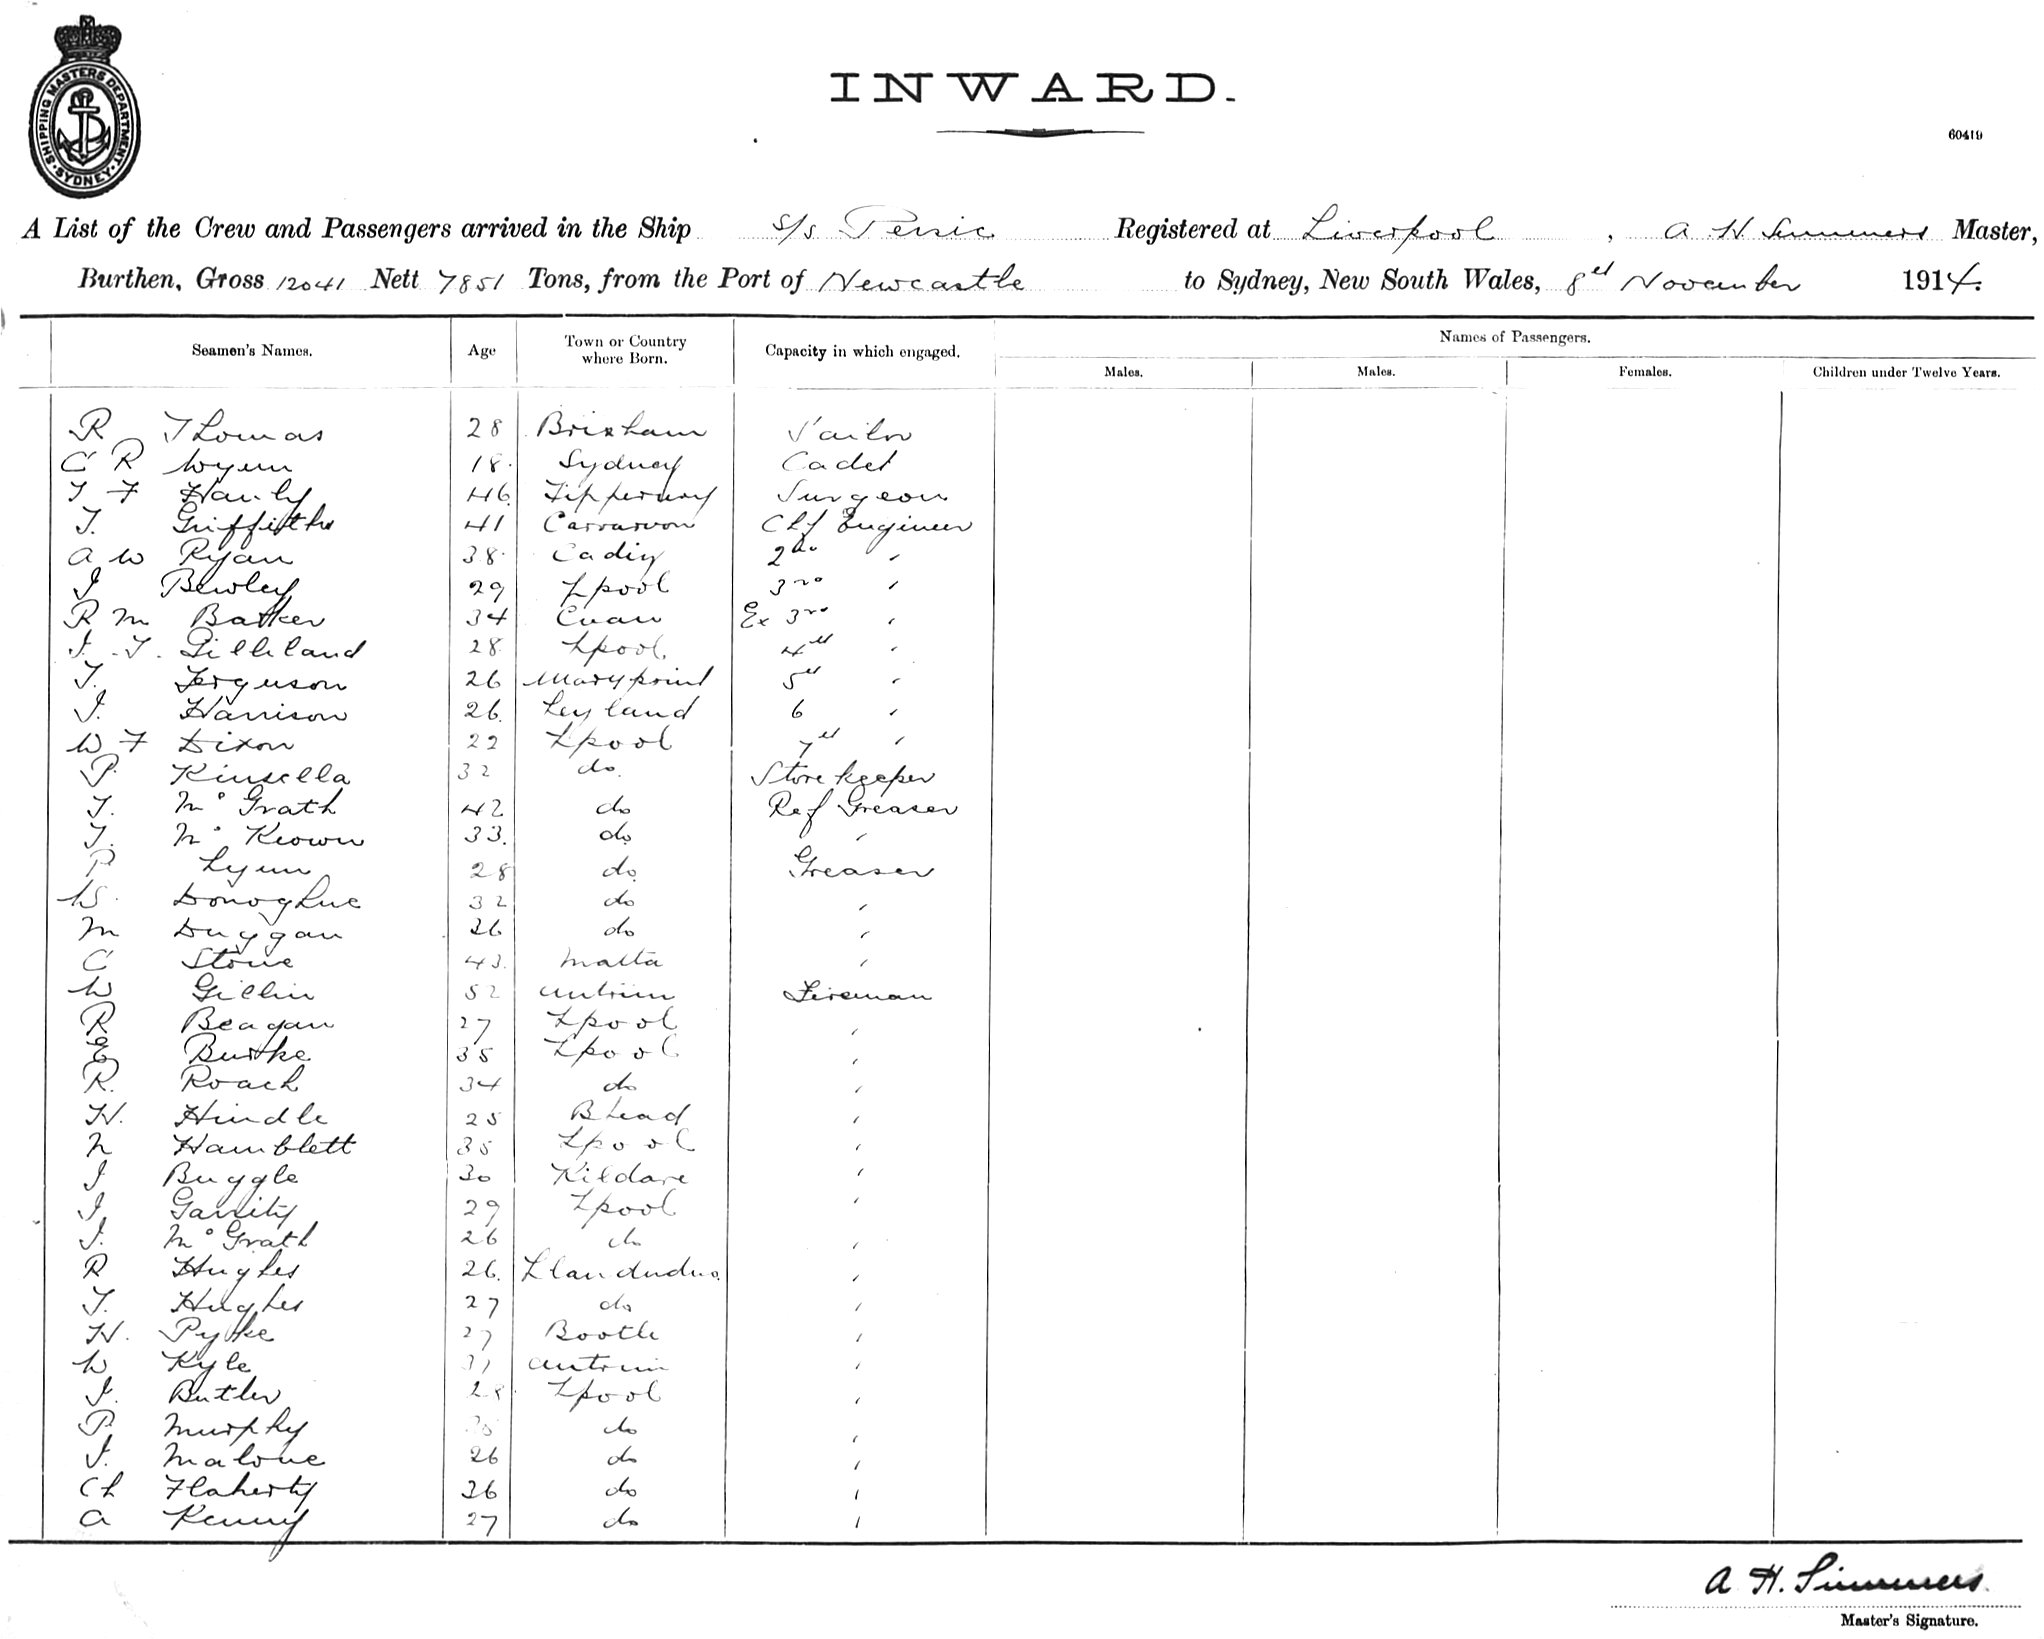 SHIPPING MASTERS DEPARTMENT. SYDNEY.
INWARD.
60419
A List of the Crew and Passengers arrived in the Ship S/s Persic Registered at Liverpool, A H Summers Master,
Burthen, Gross 12041 Nett 7851 Tons, from the Port of Newcastle to Sydney, New South Wales, 8th November 1914.
Names of Passengers.
Seamen's Names. Age Town or Country where Born. Capacity in which engaged. Males. Males. Females. Children under Twelve Years.
R Thomas 28 Brixham Sailor
C R Wynn 18 Sydney Cadet
T F Hanly 46 Tipperary Surgeon
T. Griffiths 41 Carnarvon Chf Engineer
A W Ryan 38 Cadiz 2nd "
J Bewley 29 Lpool 3rd "
R M Barker 34 Ex 3rd "
J. T. Gilleland 28 Lpool 4th "
T. Ferguson 26 Maryporint 5th "
J. Harrison 26 Leyland 6 "
W F Dixon 22 Lpool 7th "
P. Kinsella 32 do. Storekeeper
T. McGrath 42 do Ref Greaser
T. McKeown 33 do "
P Lynn 28 do Greaser
W. Donoghue 32 do "
M Duggan 26 do "
C Stone 43 Malta "
W Gillin 52 Antrim Fireman
R Beagan 27 Lpool "
E Burke 35 Lpool "
R. Roach 34 do "
H. Hindle 25 Bhead "
N Hamblett 35 Lpool "
J Buggle 30 Kildare "
J. Garrity 29 Lpool "
J. McGrath 26 do "
R Hughes 26 Llandudno "
T. Hughes 27 do "
H. Pyke 27 Bootle "
W Kyle Antrim "
J. Butler 28 Lpool "
P. Murphy do "
J. Malone 26 do "
Ch Flaherty 26 do "
A Kenny 27 do "
A H. Summers
Master's Signature.